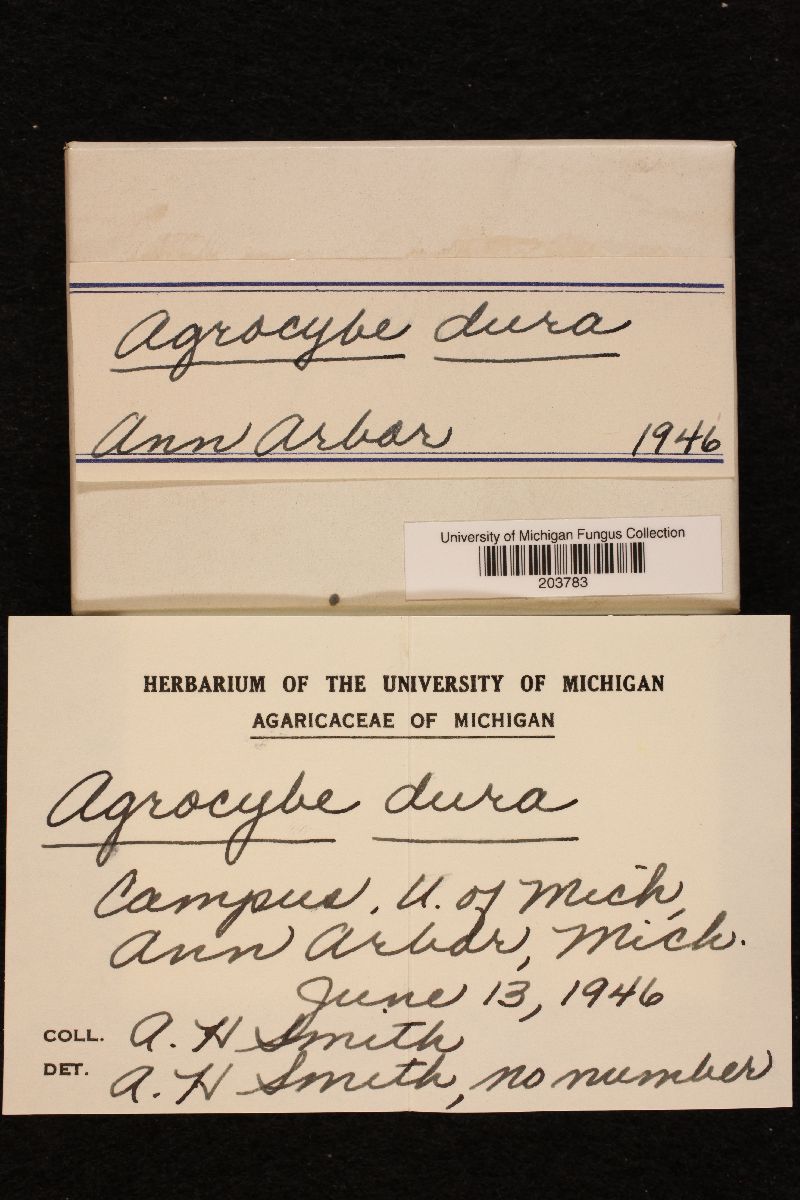 Agrocybe dura
Ann Arbor 1946
University of Michigan Fungus Collection
203783
HERBARIUM OF THE UNIVERSITY OF MICHIGAN
AGARICACEAE OF MICHIGAN
Agrocybe dura
Campus, U. of Mich,
Ann Arbor, Mich.
June 13, 1946
COLL. A. H Smith
DET. A. H Smith, no number